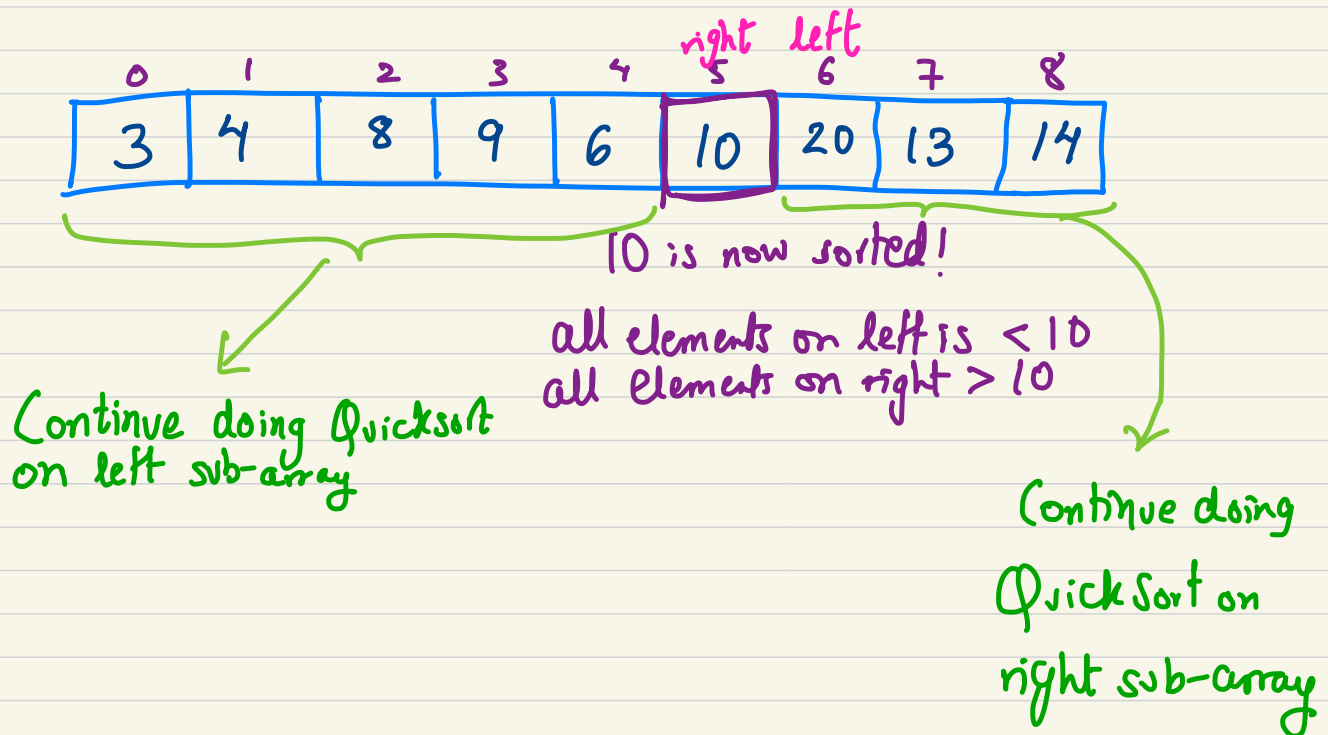 right left
0 1 2 3 4 5 6 7 8
3 4 8 9 6 10 20 13 14
10 is now sorted!
all elements on left is < 10
all elements on right > 10
Continue doing Quicksort
on left sub-array
Continue doing
QuickSort on
right sub-array